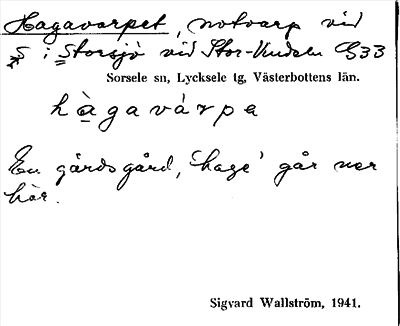 Hagavarpet, notvarp vid
S i Storsjö vid Stor-Vindeln G33
Sorsele sn, Lycksele tg, Västerbottens län.
hàgavárpe
En gärdsgård, 'hage' går ner
här.
Sigvard Wallström, 1941.